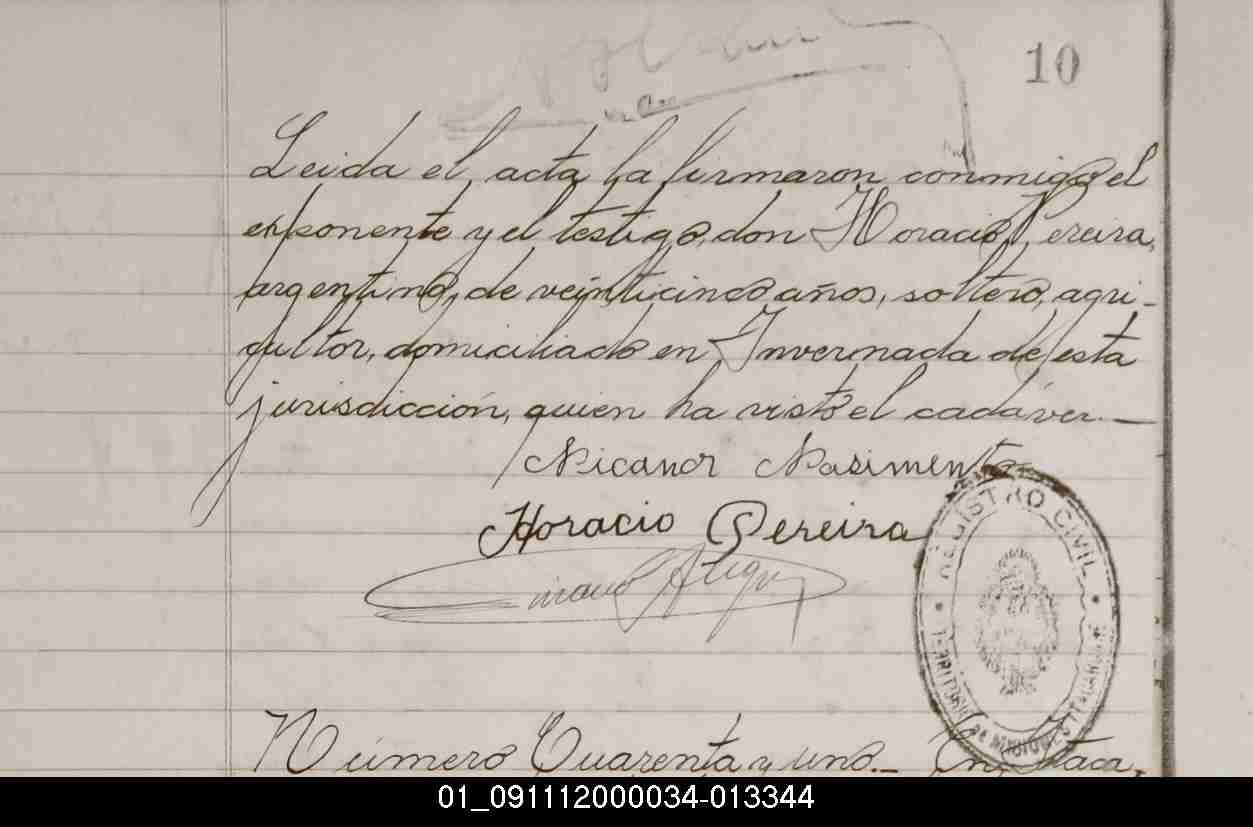 10
Leida el acta la firmaron conmigo el
exponente y el testigo, don Horacio Pereira,
argentino, de veinticinco años, soltero, agri-
cultor, domiciliado en Invernada de esta
jurisdicción, quien ha visto el cadáver.—
Nicanor Nasimento
Horacio Pereira
REGISTRO CIVIL
TERRITORIO DE MISIONES
Número Cuarenta y uno.— En
01_091112000034-013344